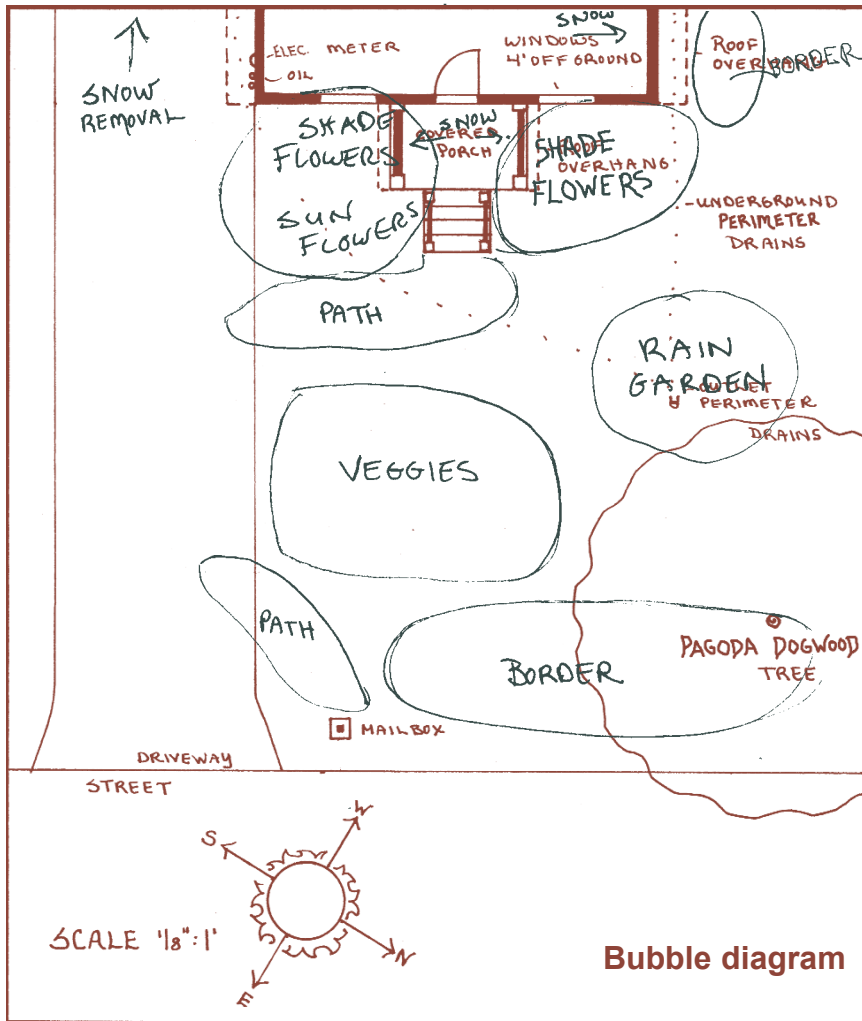 SNOW
ELEC. METER
WINDOWS
4' OFF GROUND
ROOF
OVERHANG
BORDER
OIL
SNOW
REMOVAL
SHADE
FLOWERS
SNOW
COVERED
PORCH
SHADE
FLOWERS
ROOF
OVERHANG
SUN
FLOWERS
UNDERGROUND
PERIMETER
DRAINS
PATH
RAIN
GARDEN
OUTLET
PERIMETER
DRAINS
VEGGIES
PATH
BORDER
PAGODA DOGWOOD
TREE
MAILBOX
DRIVEWAY
STREET
W
S
N
E
SCALE 1/8":1'
Bubble diagram